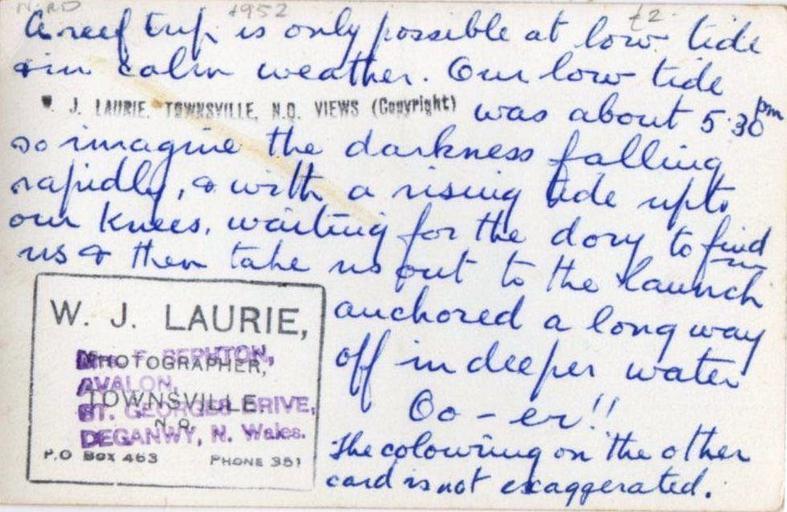 1952
£2
A reef trip is only possible at low tide
& in calm weather. Our low tide
W. J. LAURIE. TOWNSVILLE. N.Q. VIEWS (Copyright) was about 5.30 pm
so imagine the darkness falling
rapidly, & with a rising tide upto
our knees, waiting for the dory to find
us & then take us out to the launch
anchored a long way
off in deeper water
Oo - er!!
The colouring on the other
card is not exaggerated.
W. J. LAURIE,
PHOTOGRAPHER,
TOWNSVILLE,
N.Q.
P.O BOX 463 PHONE 351
AVALON,
ST. GEORGES DRIVE,
DEGANWY, N. Wales.